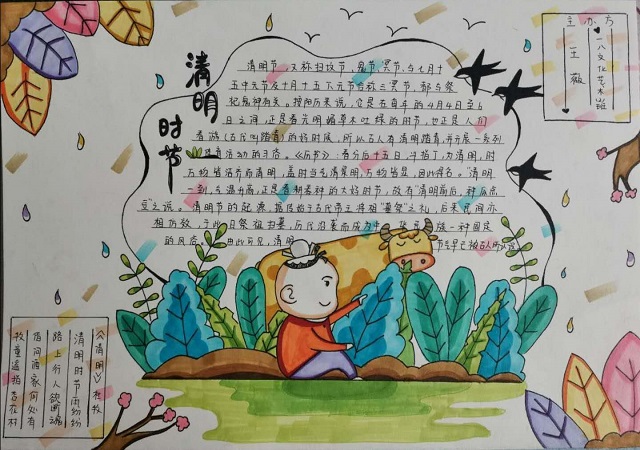 清明
时节
清明节,又称扫坟节、鬼节、冥节,与七月十
五中元节及十月十五下元节合称三冥节,都与祭
祀鬼神有关。按阳历来说,它是在每年的4月4日至6
日之间,正是春光明媚草木吐绿的时节,也正是人们
春游(古代叫踏青)的好时候,所以古人有清明踏青,并开展一系列
体育活动的习俗。《历书》:春分后十五日,斗指丁,为清明,时
万物皆洁齐而清明,盖时当气清景明,万物皆显,因此得名。"清明
一到,气温升高,正是春耕春种的大好时节,故有"清明前后,种瓜点
豆"之说。清明节的起源,据传始于古代帝王将相"墓祭"之礼,后来民间亦
相仿效,于此日祭祖扫墓,历代沿袭而成为中 族一种固定
的风俗。 由此可见,清明 节在早已被古人所认识
主办方
一八文化艺术
王薇
《清明》杜牧
清明时节雨纷纷
路上行人欲断魂
借问酒家何处有
牧童遥指杏花村